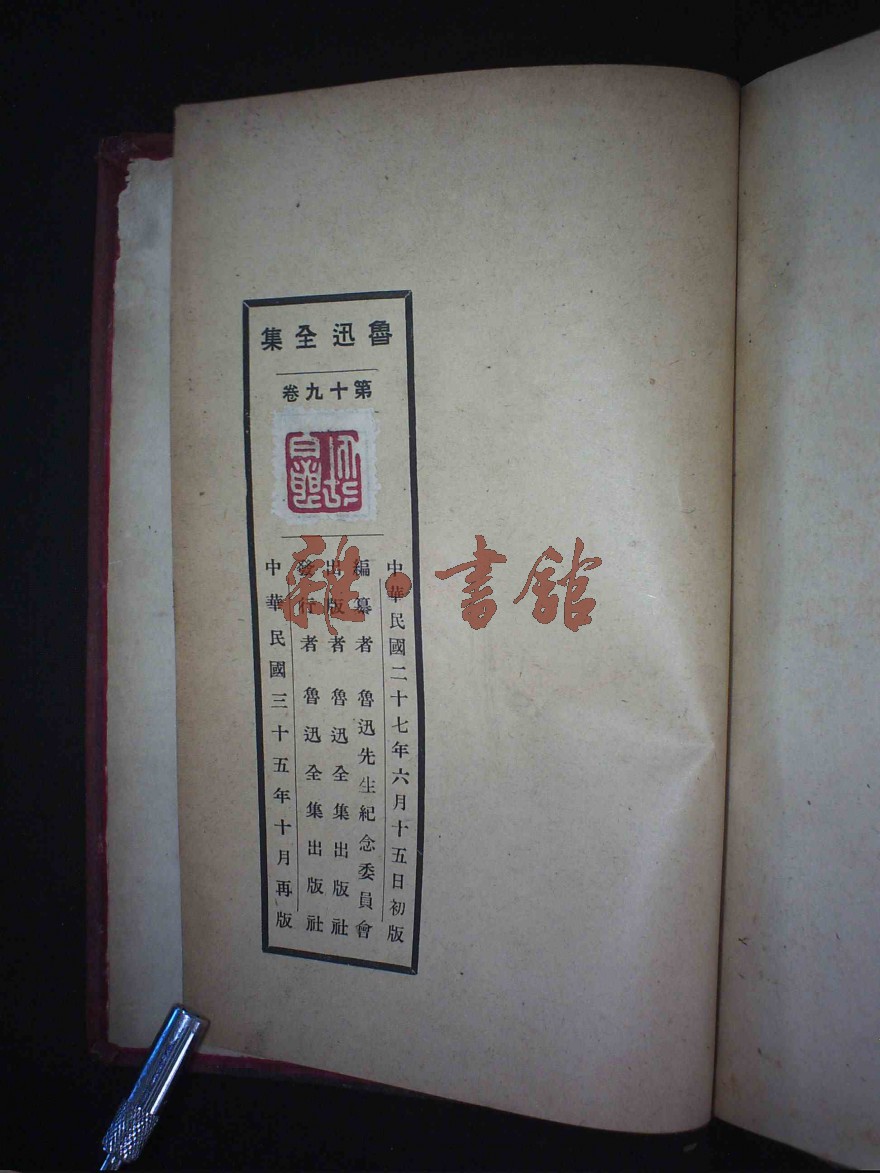 魯迅全集
第十九卷
中華民國二十七年六月十五日初版
編纂者 魯迅先生紀念委員會
出版者 魯迅全集出版社
發行者 魯迅全集出版社
中華民國三十五年十月再版
雜·書館